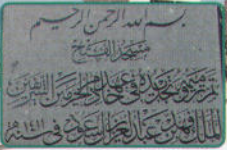 بسم الله الرحمن الرحيم
مسجد الفتح
تم ترميمه وتجديده في عهد خادم الحرمين الشريفين
الملك فهد بن عبدالعزيز السعود في سنة ١٤١١هـ